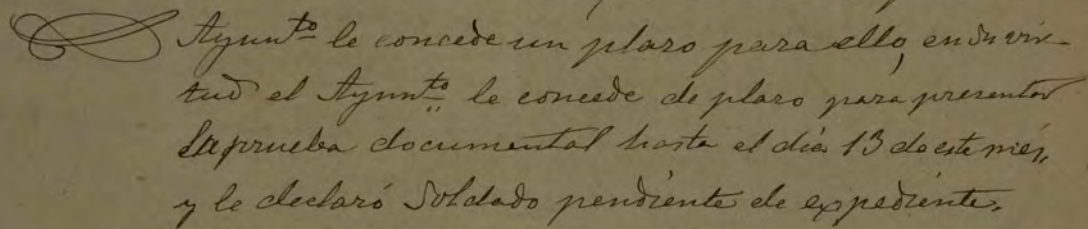 Ayunto le concede un plazo para ello, en su vir-
tud el Ayunto le concede de plazo para presentar
la prueba documental hasta el día 13 de este mes,
y le declaró Soldado pendiente de expediente.